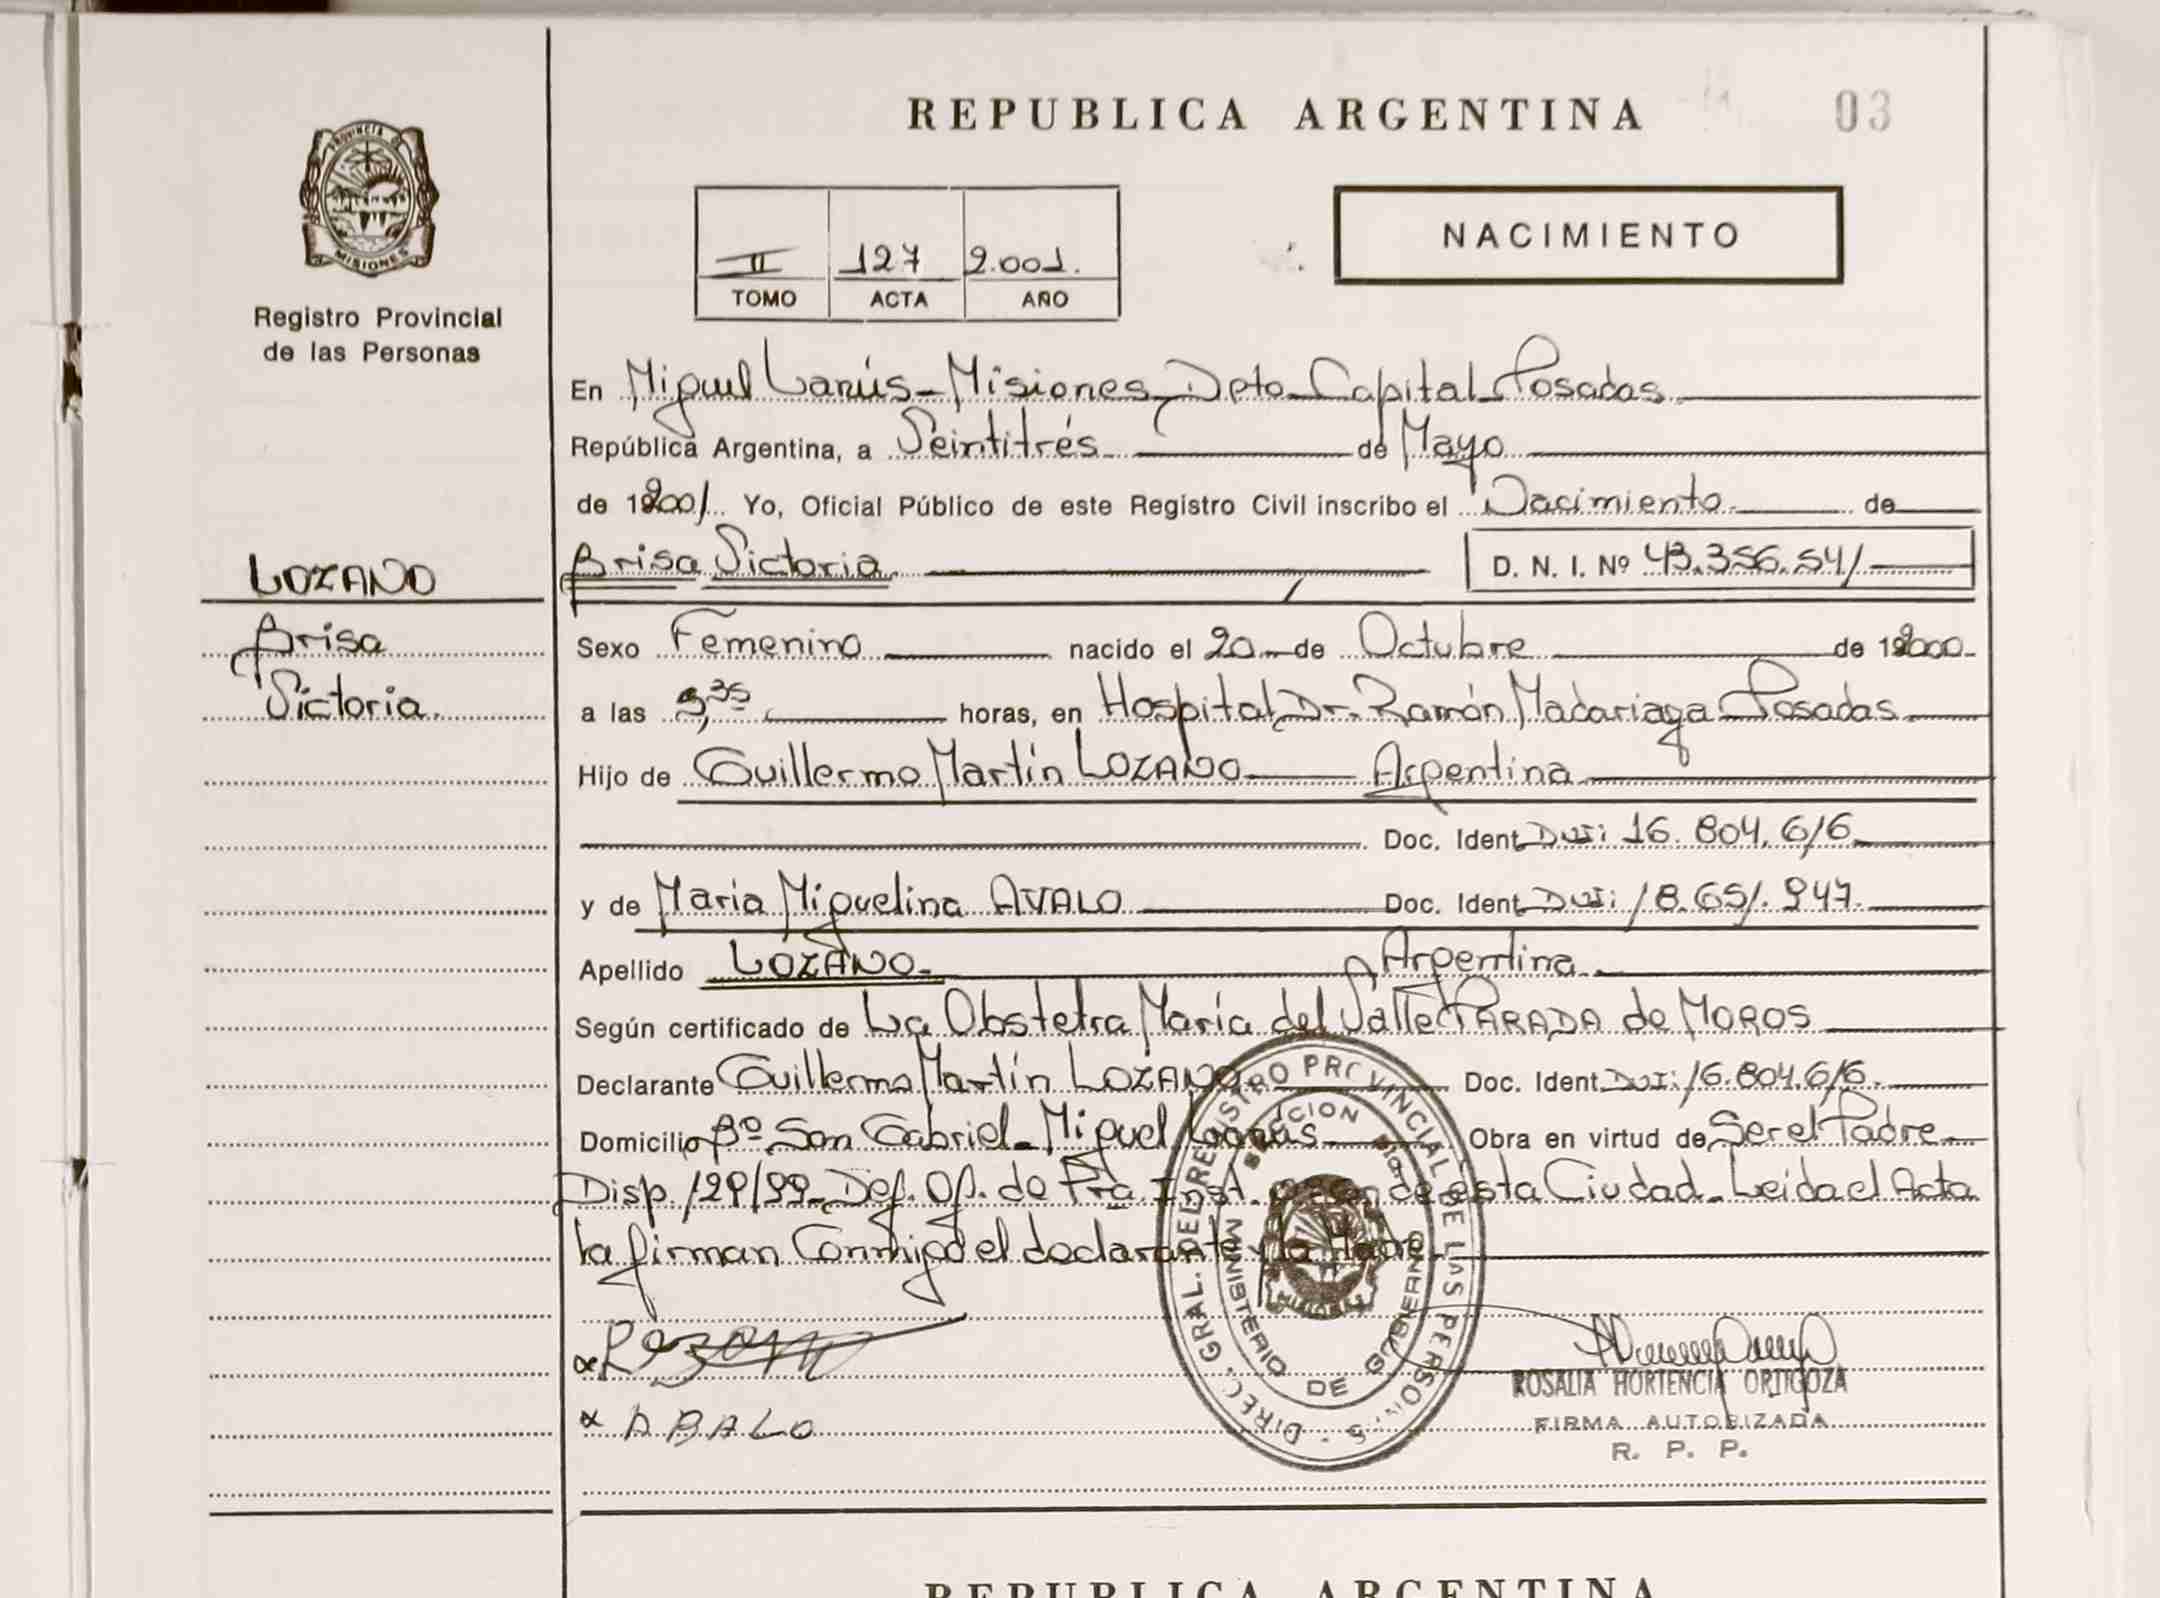 REPUBLICA ARGENTINA
03
PROVINCIA DE
MISIONES
Registro Provincial
de las Personas
II 127 2.001.
TOMO ACTA AÑO
NACIMIENTO
En Miguel Lanús - Misiones, Dpto Capital Posadas
República Argentina, a Veintitrés de Mayo
de 192001 Yo, Oficial Público de este Registro Civil inscribo el Nacimiento de
LOZANO
Brisa Victoria D. N. I. Nº 43.356.541
Brisa
Sexo Femenino nacido el 20 de Octubre de 192000
Victoria.
a las 9,35 horas, en Hospital Dr. Ramón Madariaga Posadas
Hijo de Guillermo Martín LOZANO Argentina
Doc. Ident DNI: 16.804.616
y de María Miguelina AVALO Doc. Ident DNI: 18.651.947.
Apellido LOZANO. Argentina
Según certificado de La Obstetra María del Valle PARADA de MOROS
Declarante Guillermo Martín LOZANO Doc. Ident DNI: 16.804.616.
Domicilio Bº San Gabriel - Miguel Lanús Obra en virtud de Ser el Padre
Disp. 129/99 - Def. Of. de Pra Inst. de esta Ciudad - Leida el Acta
la firman Conmigo el declarante y la Madre
DIREC. GRAL. DEL REGISTRO PROVINCIAL DE LAS PERSONAS
MINISTERIO DE GOBIERNO
MISIONES
x ABALO
ROSALIA HORTENCIA ORTIGOZA
FIRMA AUTORIZADA
R. P. P.
REPUBLICA ARGENTINA